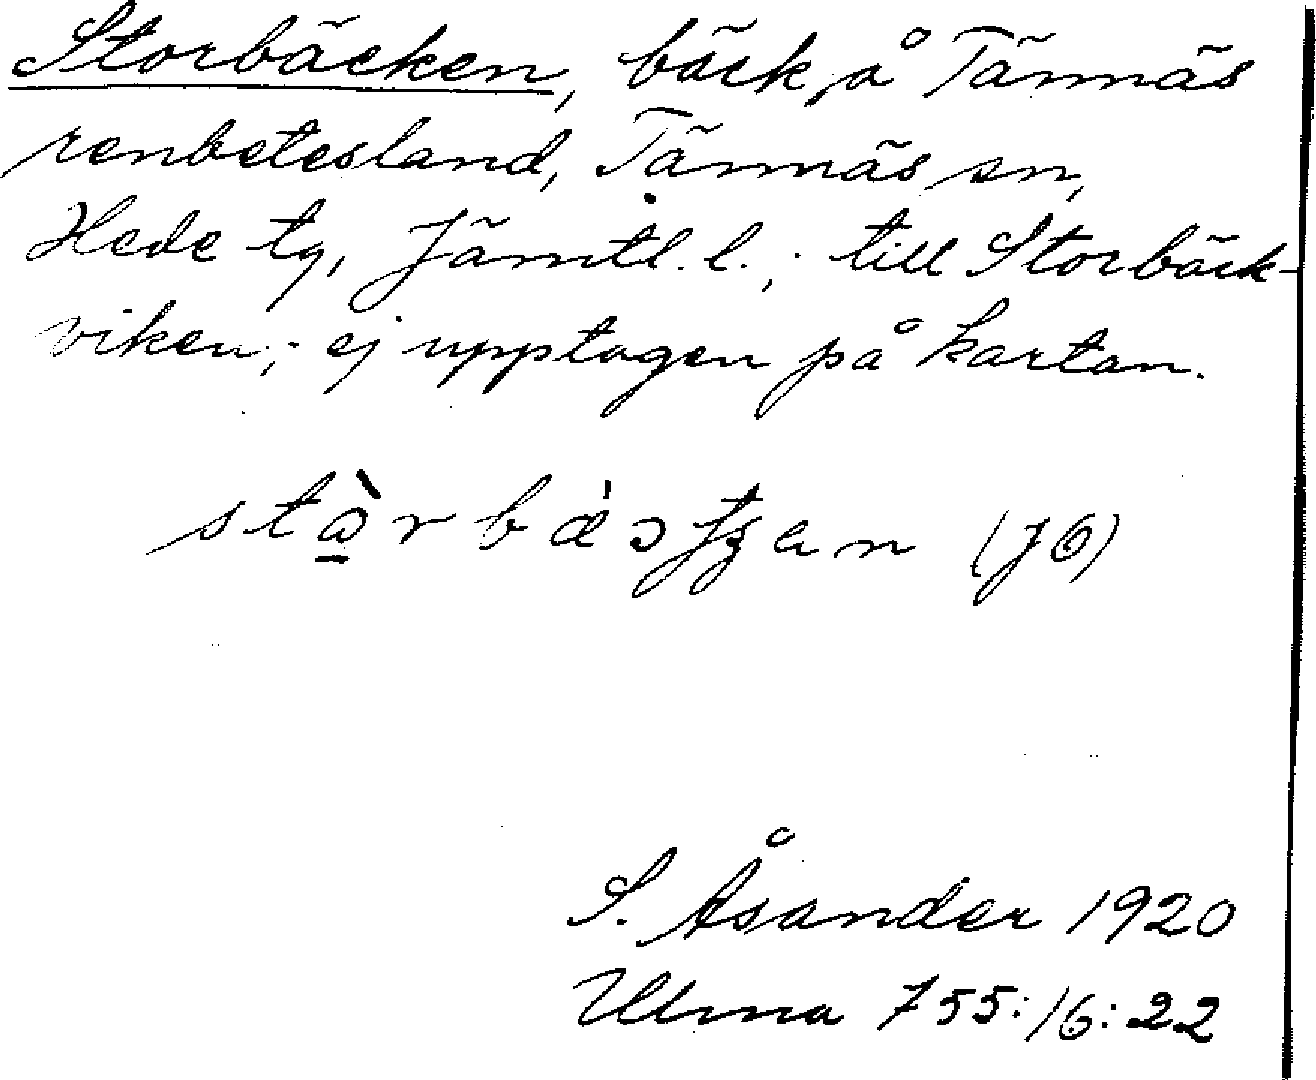 Storbäcken, bäck å Tännäs
renbetesland, Tännäs sn,
Hede tg, Jämtl. l.; till Storbäck-
viken; ej upptagen på kartan.
(JÖ)
S. Åsander 1920
Ulma 755:16:22